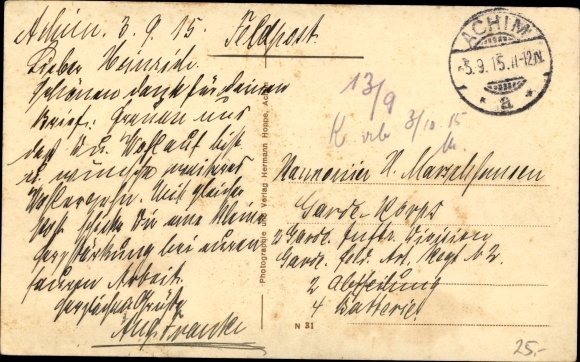 Achim. 3. 9. 15.
Feldpost.
Lieber Heinrich.
Schönen Dank für deinen
Brief. Freuen uns
daß Du Wohlauf bist
u. wünsche weiteres
Wohlergehn. Mit gleicher
Post schicke Dir eine kleine
Verstärkung bei euren
sauren Arbeit.
Herzliche Grüße
Aug. Francke
Photographie und Verlag Hermann Hoppe, Achim
ACHIM
-3.9.15.11-12N.
* a *
13/9
3/10 15
Kanonier H.
Garde Korps
2 Garde. Inftr. Division
Garde. Feld. Art. Regt No 2.
2 Abtheilung
4 Batterie.
N 31
25.-